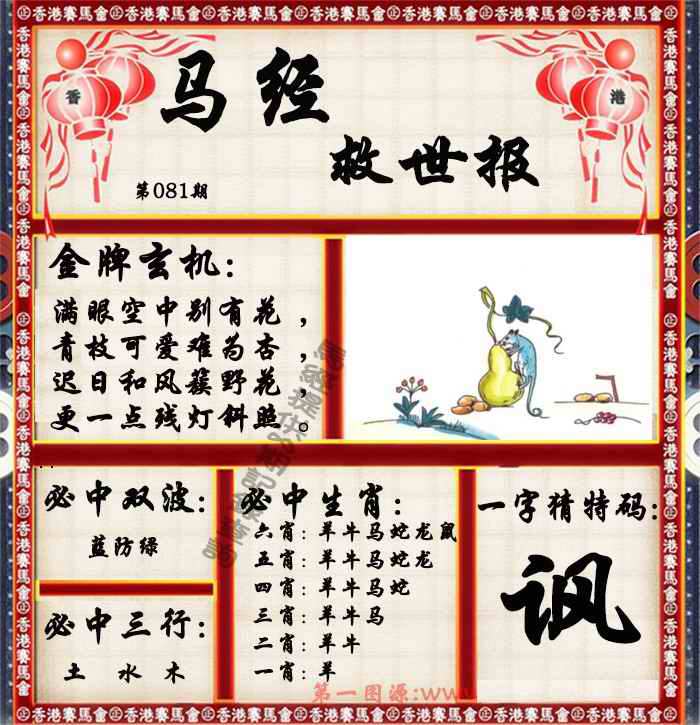 香港賽馬會
香
港
马经
救世报
第081期
金牌玄机：
满眼空中别有花，
青枝可爱难为杏，
迟日和风簇野花，
更一点残灯斜照。
必中双波：
蓝防绿
必中三行：
土 水 木
必中生肖：
六肖：羊牛马蛇龙鼠
五肖：羊牛马蛇龙
四肖：羊牛马蛇
三肖：羊牛马
二肖：羊牛
一肖：羊
一字猜特码：
讽
第一图源:www